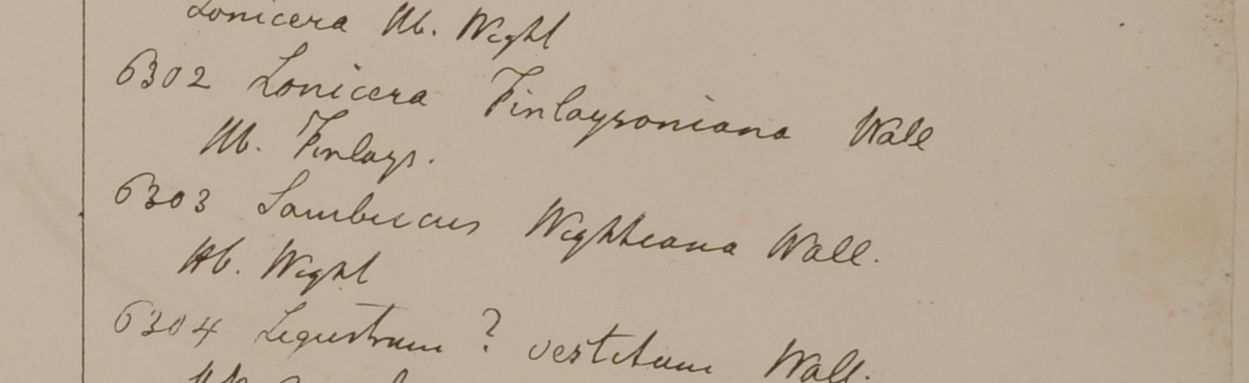 Lonicera Hb. Wight
6302 Lonicera Finlaysoniana Wall
Hb. Finlays.
6303 Sambucus Wightiana Wall.
Hb. Wight
6304 Ligustrum ? vestitum Wall.